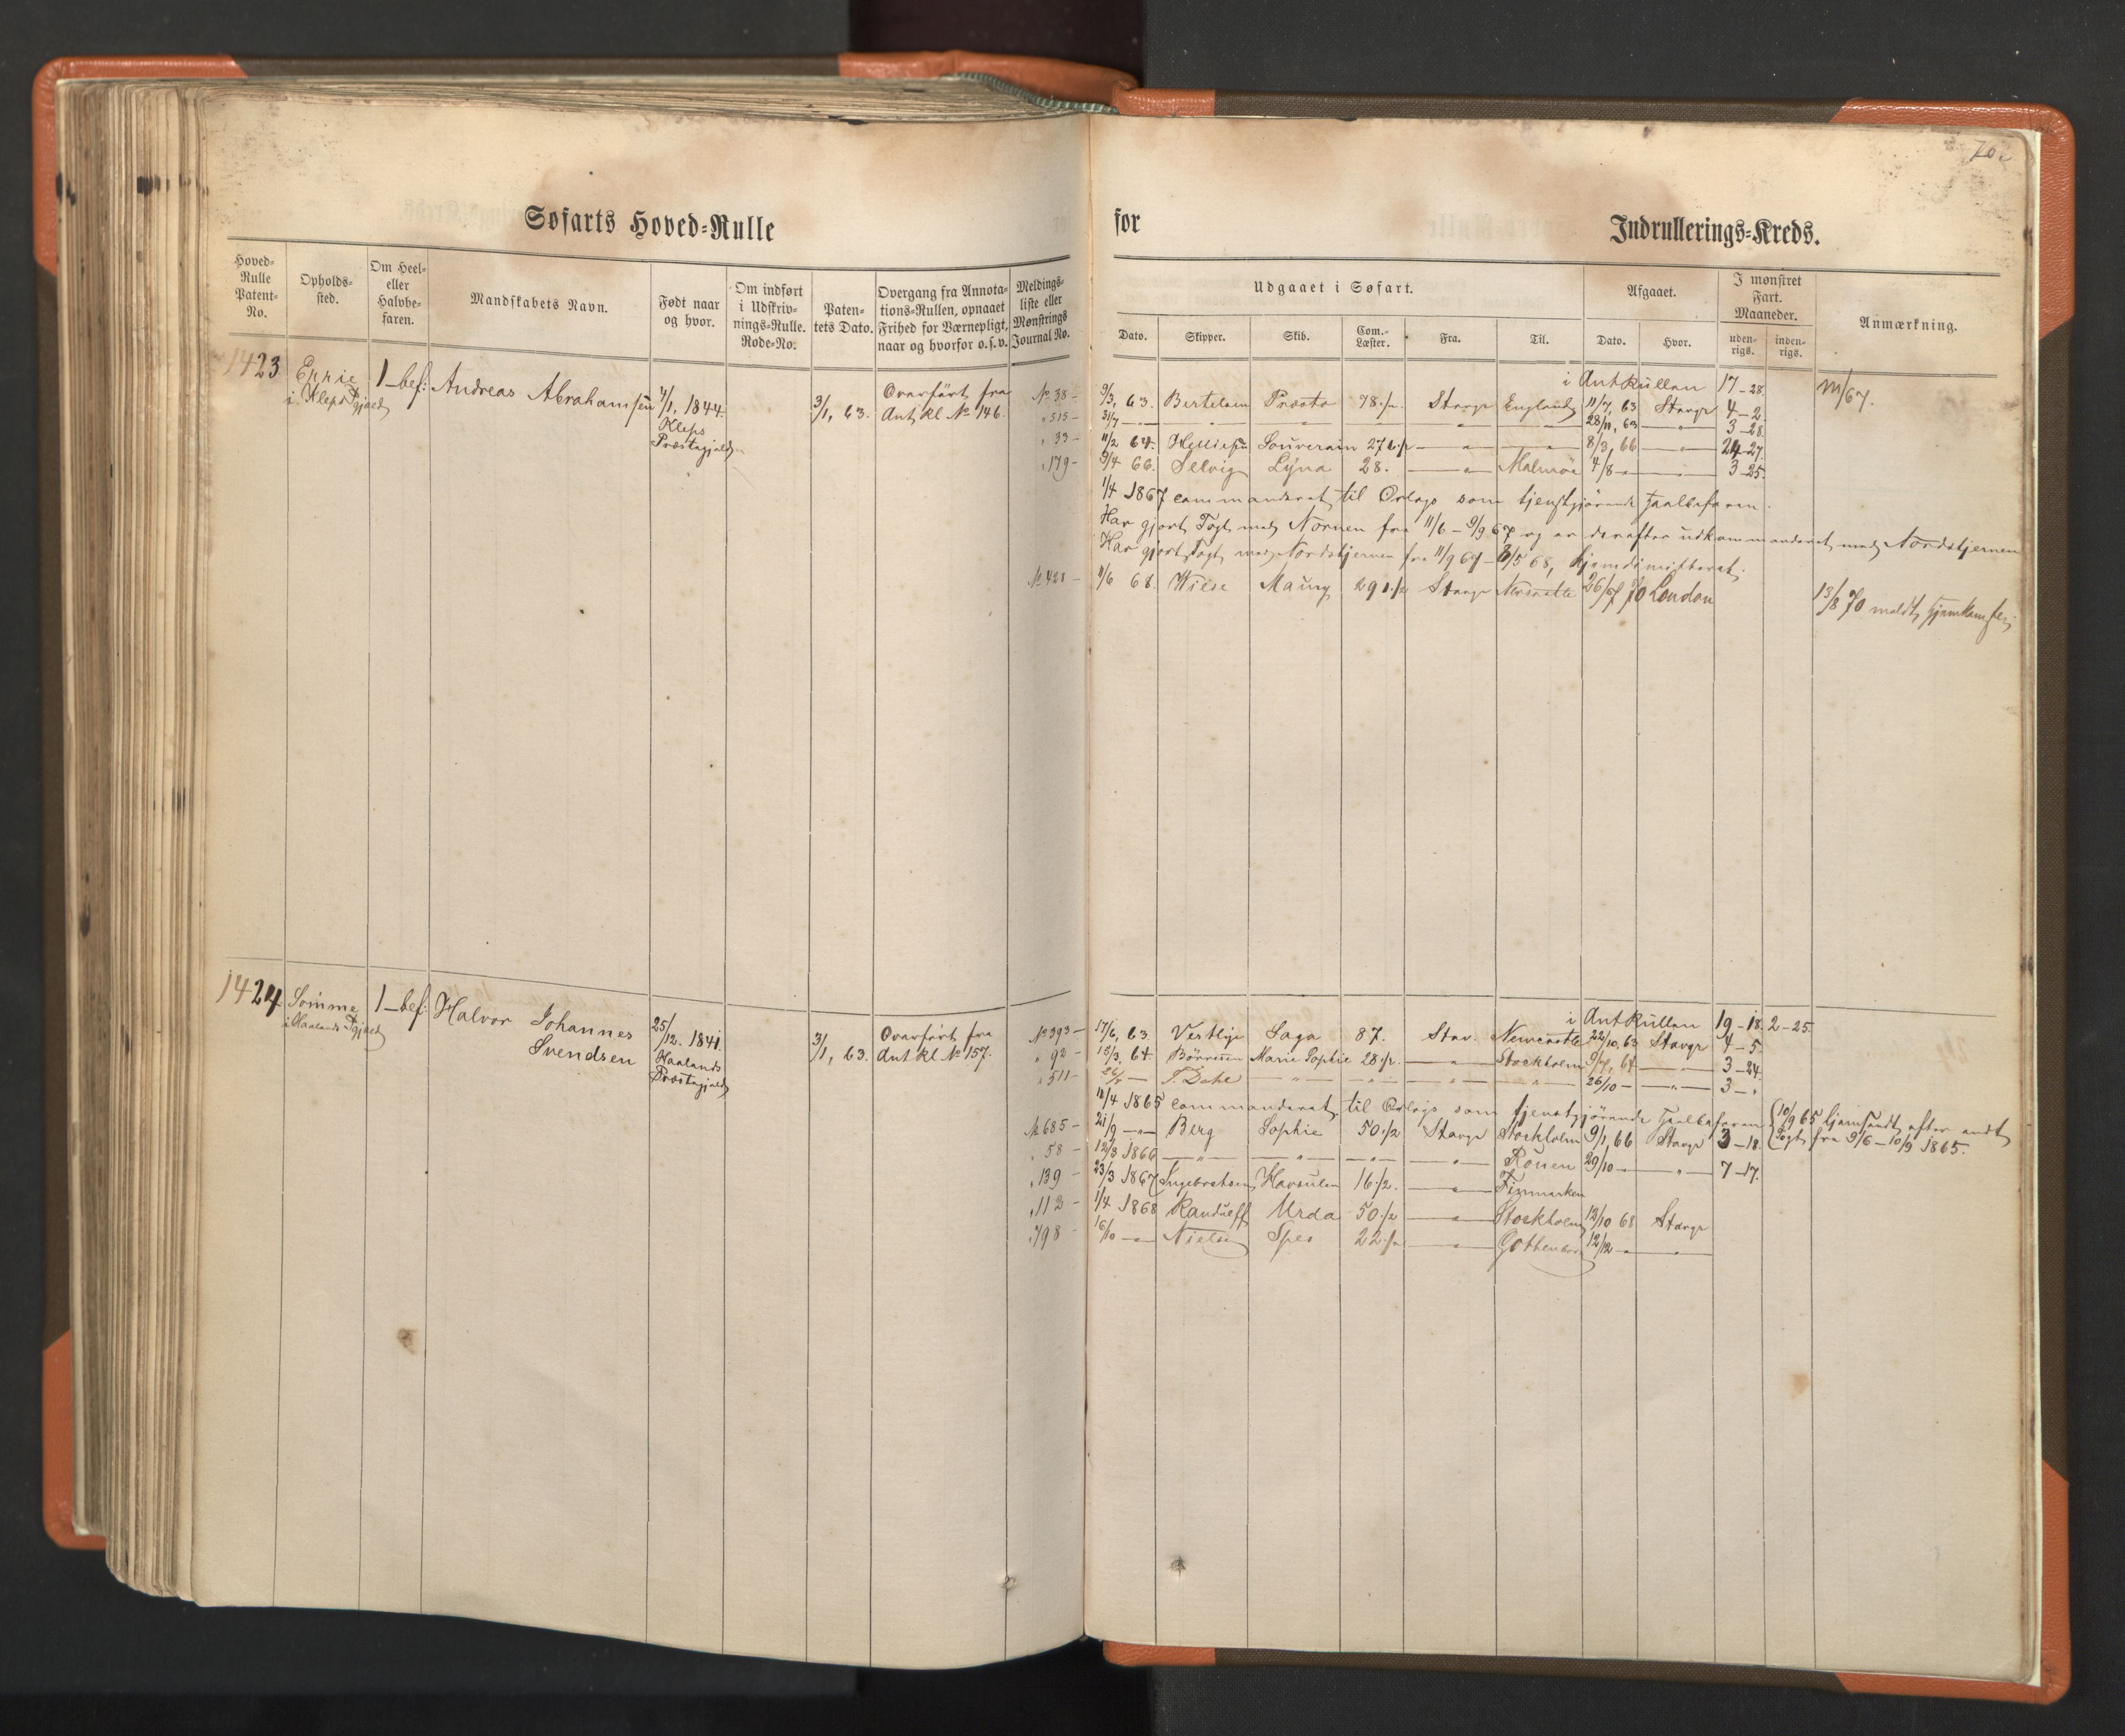 Søfarts Hoved-Rulle
for Indrullerings-Kreds.
Hoved-Rulle Patent-No.
Opholds-sted.
Om Heel- eller Halvbe-faren.
Mandskabets Navn.
Født naar og hvor.
Om indført i Udskriv-nings-Rulle. Rode-No.
Paten-tets Dato.
Overgang fra Annota-tions-Rullen, opnaaet Frihed for Værnepligt, naar og hvorfor o.s.v.
Meldings-liste eller Mønstrings Journal No.
Udgaaet i Søfart.
Dato. Skipper. Skib. Com.-Læster. Fra. Til.
Afgaaet.
Dato. Hvor.
I mønstret Fart. Maaneder.
uden-rigs. inden-rigs.
Anmærkning.
1423
i Kleps Pgjæld
1 bef:
Andreas Abrahamsen
4/1, 1844.
Kleps
Præstegjæld
3/1, 63.
Overført fra
Ant kl. No 146.
i Ant Rullen 17-28
No 38 - 9/3, 63. Bertelsen Præsto 78 1/2. Stavgr England 11/7, 63 Stavgr 4-2
" 515 - 31/7 - " - 28/11, 63 " 3-28.
" 33 - 11/2 64. Souverain 8/3, 66 " 24-27.
" 179 - 9/4 66. Selvig Lyna 28. " Malmöe 4/8 " " 3-25.
1/4 1867 commanderet til Orlogs som tjenstgjørende Heelbefaren.
Har gjort Togt med Nornen fra 11/6 - 9/9 67 og er derefter udkommanderet med Nordstjernen
Har gjort Togt med Nordstjernen fra 11/9 67 - 8/5 68, hjemdimitteret.
No 421 - 11/6 68. Wiese Maury Stavgr Newcastle 26/7 70 London
m/67.
13/8 70 meldt Hjemkomsten.
1424
Sømme
i Haalands Pgjæld
1 bef:
Halvor Johannes
Svendsen
25/12. 1841.
Haalands
Præstegjæld
3/1, 63.
Overført fra
Ant kl. No 157.
i Ant Rullen 19-18. 2-25.
No 393 - 17/6, 63. Vestlye Saga 87. Stav. Newcastle 22/10, 63 Stavgr 4-5.
" 92 - Marie Sophie 28 1/2. " Stockholm 9/7, 64 " 3-24.
" 511 - 26/10 " 3-"
11/4 1865 commanderet til Orlogs som tjenstgjørende Heelbefaren
10/9 65 hjemsendt efter endt
Togt fra 9/6 - 10/9 1865.
No 685 - 21/9 Berg Sophie 50 1/2 Stavgr Stockholm 9/1, 66 Stavgr 3-18.
" 58 - 12/3 1866 " " " " Rouen 29/10 " 7-17.
" 139 - 23/3 1867 Ingebretsen Havsulen 16 1/2. " Finmarken
" 113 - 1/4 1868 Randulff Urda 50 1/2 " Stockholm 13/10 68 Stavgr
" 798 - 16/10 Nielsen Spes 22 1/2 " Gothenborg 12/12 "